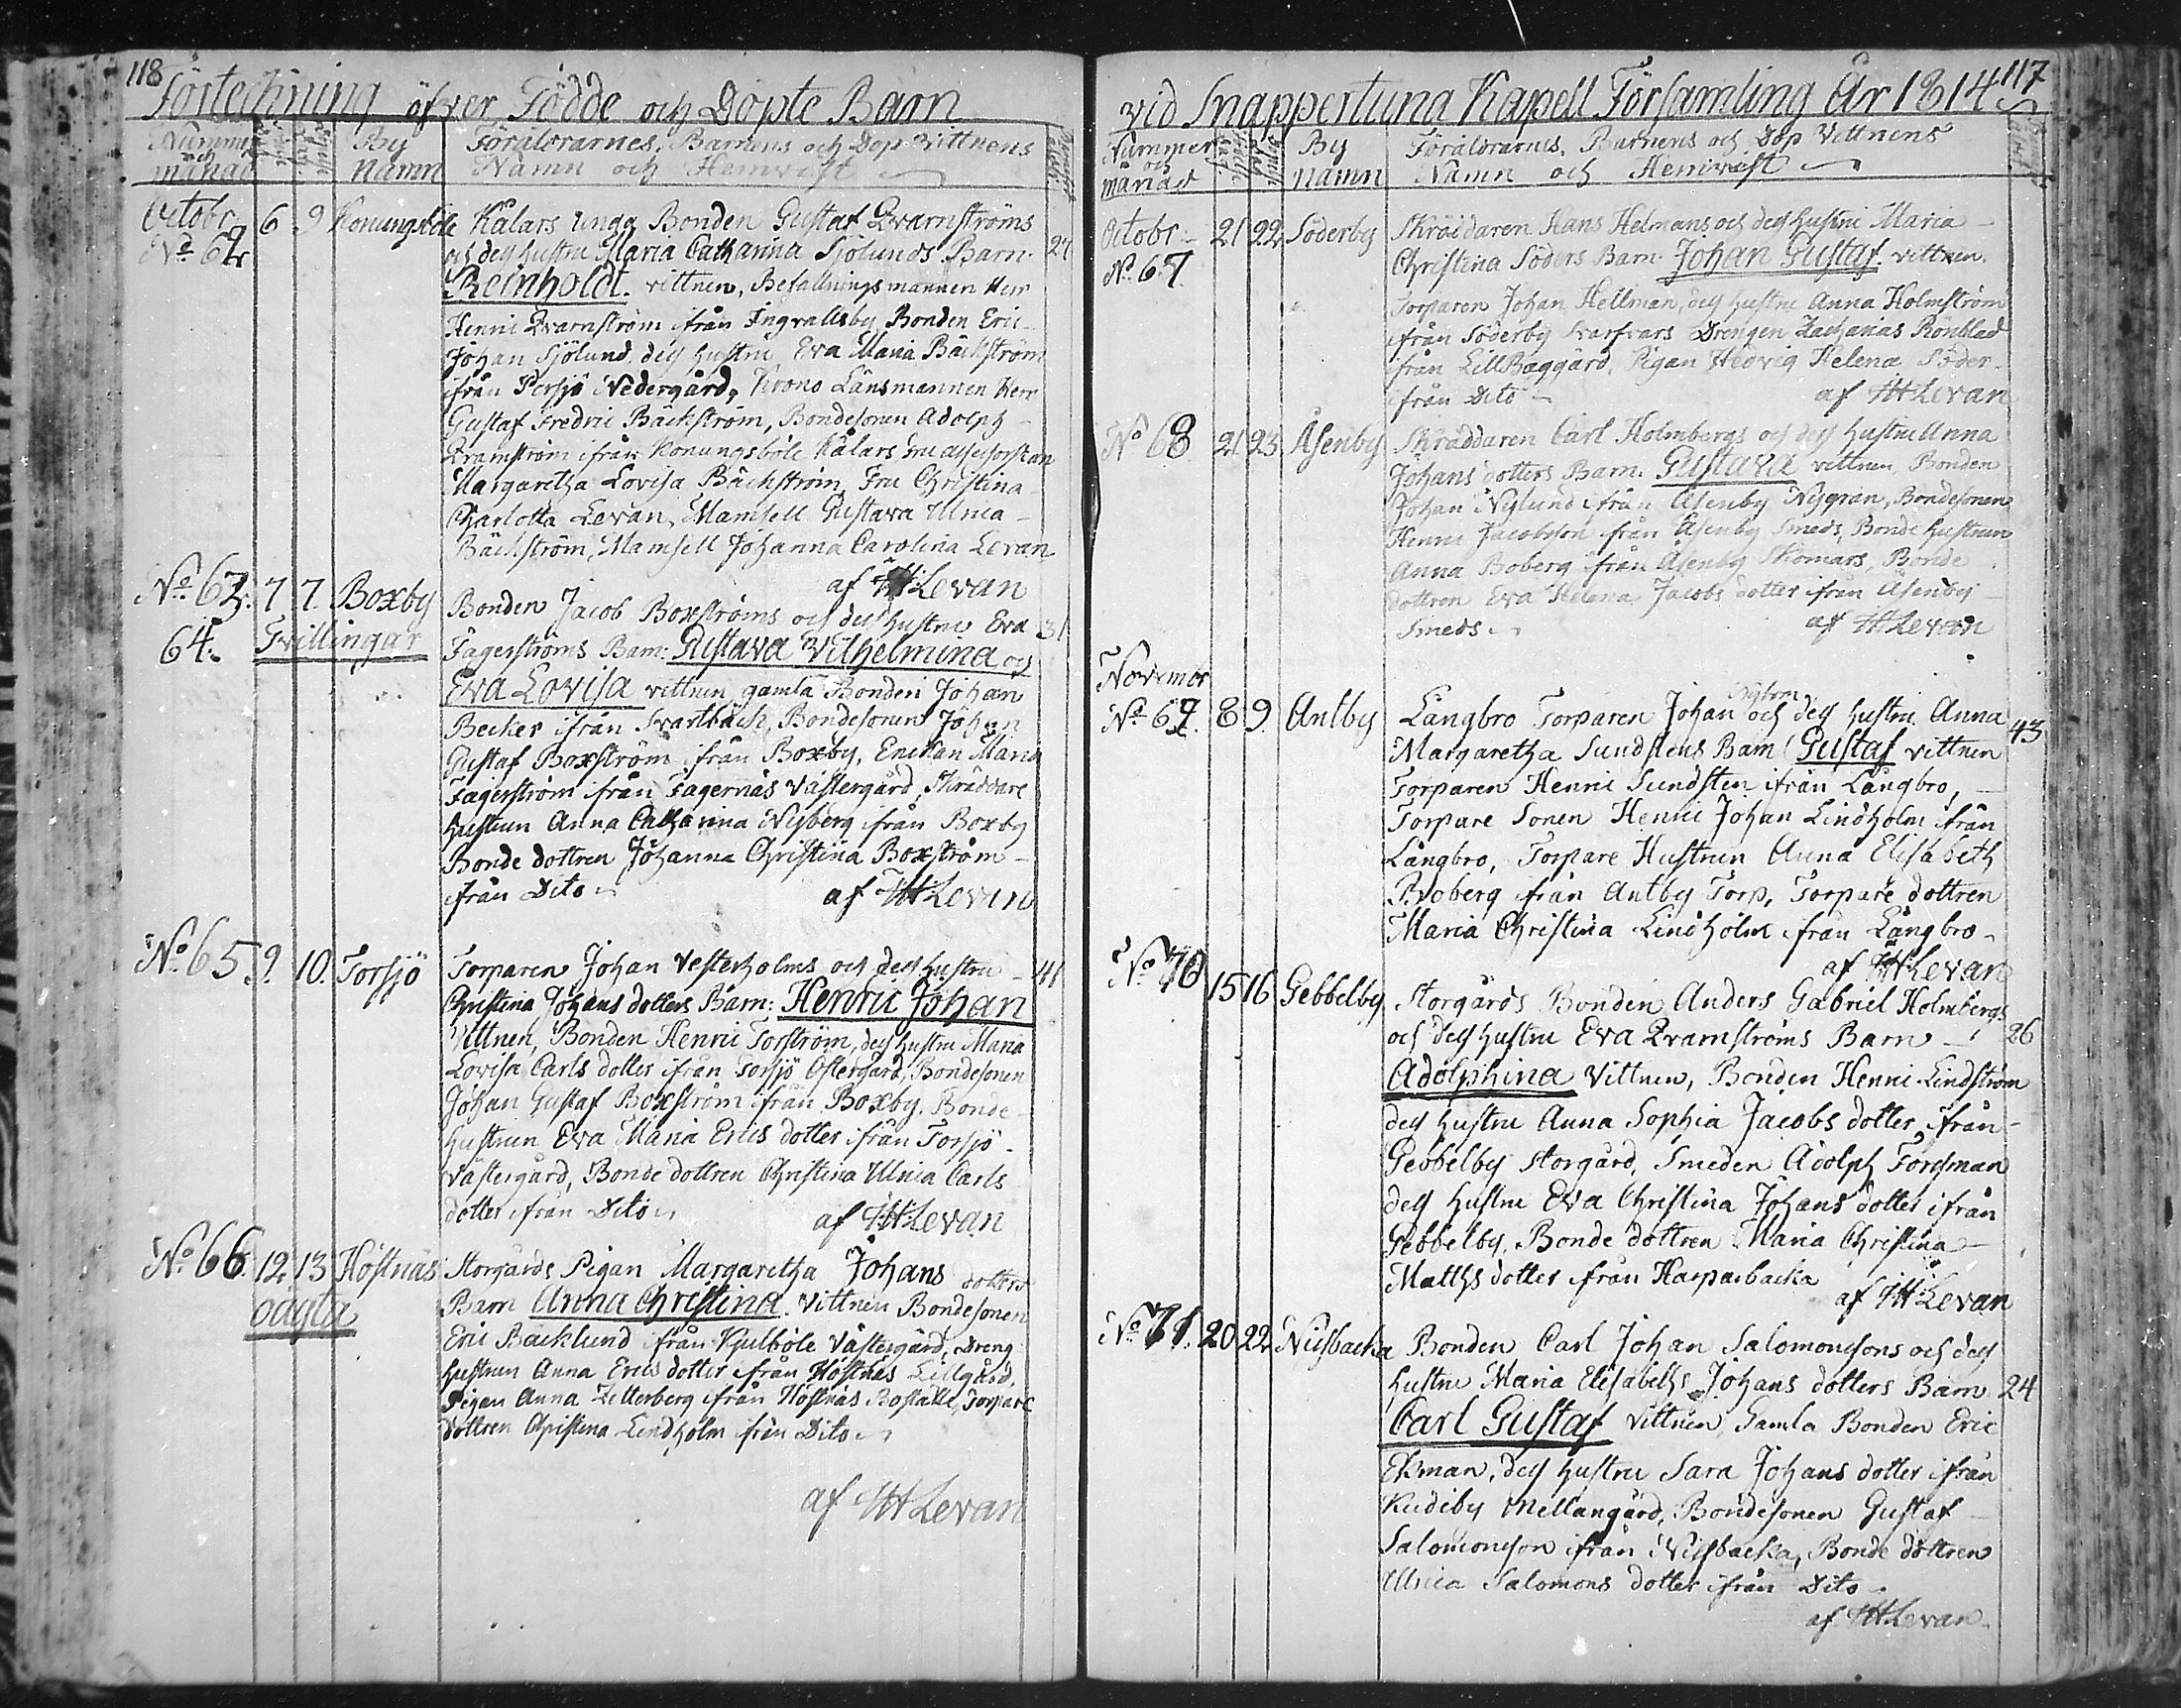 118
Förteckning öfver Födde och Döpte Barn
Nummer och månad
By Namn
Föräldrarnes, Barnens och Dop Vittnens
Namn och Hemvist
Octobr 6 9 Konungsböle Kålars unga Bonden Gustaf Qvarnströms
No 62. och dess hustru Maria Catharina Sjölunds Barn. 27
Reinholdt. vittnen, Befallningsmannen Herr
Henric Qvarnström ifrån Ingvallsby, Bonden Eric
Johan Sjölund, dess hustru Eva Maria Bäckström
ifrån Persjö Nedergård, Krono Länsmannen Herr
Gustaf Fredric Bäckström, Bondesonen Adolph
Qvarnström ifrån Konungsböle Kålars
Margaretha Lovisa Bäckström, Fru Christina
Charlotta Levan, Mamsell Gustava Ulrica
Bäckström, Mamsell Johanna Carolina Levan
af HH Levan
No 63. 7 7. Boxby Bonden Jacob Boxströms och dess hustru Eva 31
64. Tvillingar Fagerströms Barn: Gustava Vilhelmina och
Eva Lovisa vittnen gamla Bonden Johan
Becker ifrån Svartbäck, Bondesonen Johan
Gustaf Boxström ifrån Boxby, Enckan Maria
Fagerström ifrån Fagernäs Västergård, Skräddare
hustrun Anna Catharina Nyberg ifrån Boxby
Bonde dottren Johanna Christina Boxström
ifrån Dito
af HH Levan
No 65 9. 10. Torsjö Torparen Johan Vesterholms och dess hustru 41
Christina Johans dotters Barn: Henric Johan
Vittnen, Bonden Henric Torström, dess hustru Maria
Lovisa Carls dotter ifrån Torsjö Östergård, Bondesonen
Johan Gustaf Boxström ifrån Boxby, Bonde
hustrun Eva Maria Erics dotter ifrån Torsjö
Västergård, Bonde dottren Christina Ulrica Carls
dotter ifrån Dito
af HH Levan
No 66. 12. 13 Höstnäs Storgårds Pigan Margaretha Johans dotters
oägta Barn Anna Christina. Vittnen Bondesonen
Eric Bäcklund ifrån Kjulböle Västergård, Dreng
hustrun Anna Erics dotter ifrån Höstnäs Lillgård,
Pigan Anna Zetterberg ifrån Höstnäs Boställe, Torpare
dottren Christina Lindholm ifrån Dito
af HH Levan
117
vid Snappertuna Kapell Församling År 1814
Nummer och månad
By namn
Föräldrarnes, Barnens och Dop Vittnens
Namn och Hemvist
Octobr 21 22 Söderby Skräddaren Hans Helmans och dess hustru Maria
No. 67. Christina Söders Barn. Johan Gustaf. vittnen.
Torparen Johan Hellman, dess hustru Anna Holmström
ifrån Söderby Svarfvars Drengen Zacharias Rönblad
ifrån Lill Baggård, Pigan Hedvig Helena Söder
ifrån Dito
af HH Levan
No 68 21 23 Åsenby Skräddaren Carl Holmbergs och dess hustru Anna
Johans dotters Barn: Gustava vittnen Bonden
Johan Nylund ifrån Åsenby Nygran, Bondesonen
Henric Jacobsson ifrån Åsenby Smeds, Bonde hustrun
Anna Boberg ifrån Åsenby Skomars, Bonde
dottren Eva Helena Jacobs dotter ifrån Åsenby
Smeds
af HH Levan
Novembr
No 69. 8 9. Antby Långbro Torparen Johan Nybom och dess hustru Anna 43
Margaretha Sundstens Barn Gustaf vittnen
Torparen Henric Sundsten ifrån Långbro,
Torpare Sonen Henric Johan Lindholm ifrån
Långbro, Torpare Hustrun Anna Elisabeth
Boberg ifrån Antby Torp, Torpare dottren
Maria Christina Lindholm ifrån Långbro
af HH Levan
No 70 15 16 Gebbelby Storgårds Bonden Anders Gabriel Holmbergs
och dess hustru Eva Qvarnströms Barn 26
Adolphina Vittnen, Bonden Henric Lindström
dess hustru Anna Sophia Jacobs dotter ifrån
Gebbelby Storgård, Smeden Adolph Forssman
dess hustru Eva Christina Johans dotter ifrån
Gebbelby, Bonde dottren Maria Christina
Matths dotter ifrån Harparbacka
af HH Levan
No 71. 20 22 Nissbacka Bonden Carl Johan Salomonssons och dess
hustru Maria Elisabeths Johans dotters Barn 24
Carl Gustaf Vittnen, Gamla Bonden Eric
Ekman, dess hustru Sara Johans dotter ifrån
Kudeby Mellangård, Bondesonen Gustaf
Salomonsson ifrån Nissbacka, Bonde dottren
Ulrica Salomons dotter ifrån Dito
af HH Levan